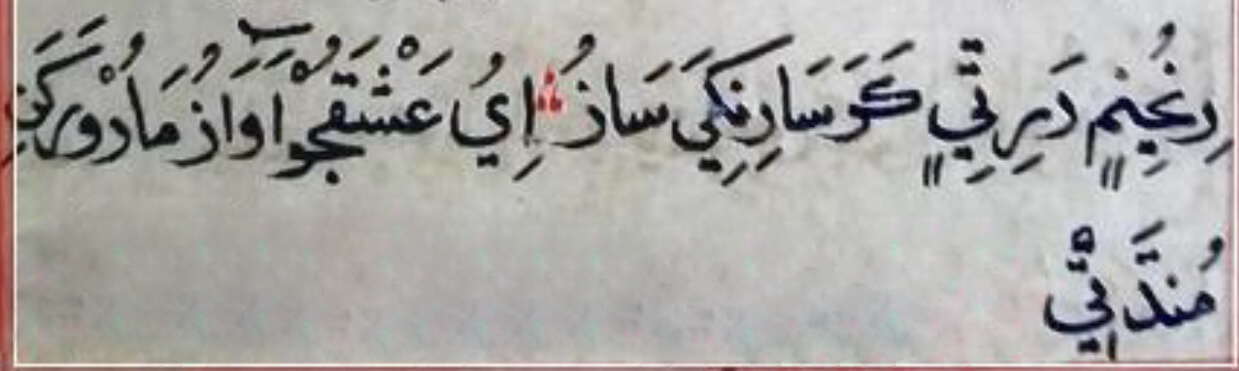 رِڃُنِمٍ رَڙِ تِّيٍ كَرَ سَارِنكِيَ سَازُ ؞ اِيُ عَشْقَجُوْ آوَازُ مَاڙْوُ رَكَنِ
مُندَ تِيّ